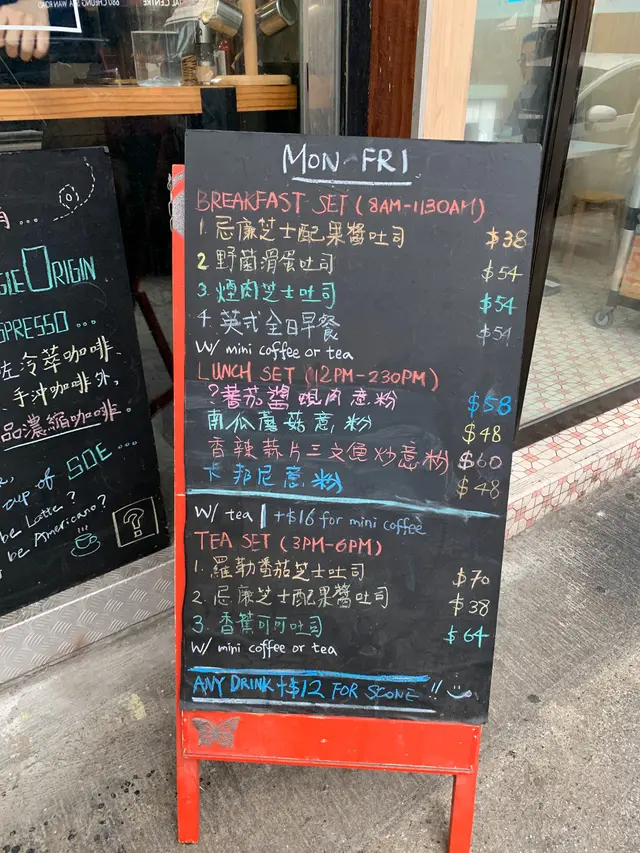 680 CHEUNG SHA WAN ROAD
MON-FRI
BREAKFAST SET (8AM-1130AM)
1. 忌廉芝士配果醬吐司 $38
2 野菌滑蛋吐司 $54
3. 煙肉芝士吐司 $54
4. 英式全日早餐 $54
W/ mini coffee or tea
LUNCH SET (12PM-230PM)
?蕃茄醬蜆肉意粉 $58
南瓜蘑菇意粉 $48
香辣蒜片三文魚炒意粉 $60
卡邦尼意粉 $48
W/ tea | +$16 for mini coffee
TEA SET (3PM-6PM)
1. 羅勒番茄芝士吐司 $70
2. 忌廉芝士配果醬吐司 $38
3. 香蕉可可吐司 $64
W/ mini coffee or tea
ANY DRINK +$12 FOR SCONE !!
...
GIE ORIGIN
SPRESSO ...
左冷萃咖啡、
手沖咖啡外,
品濃縮咖啡。
cup of SOE ...
be Latte?
be Americano?
?